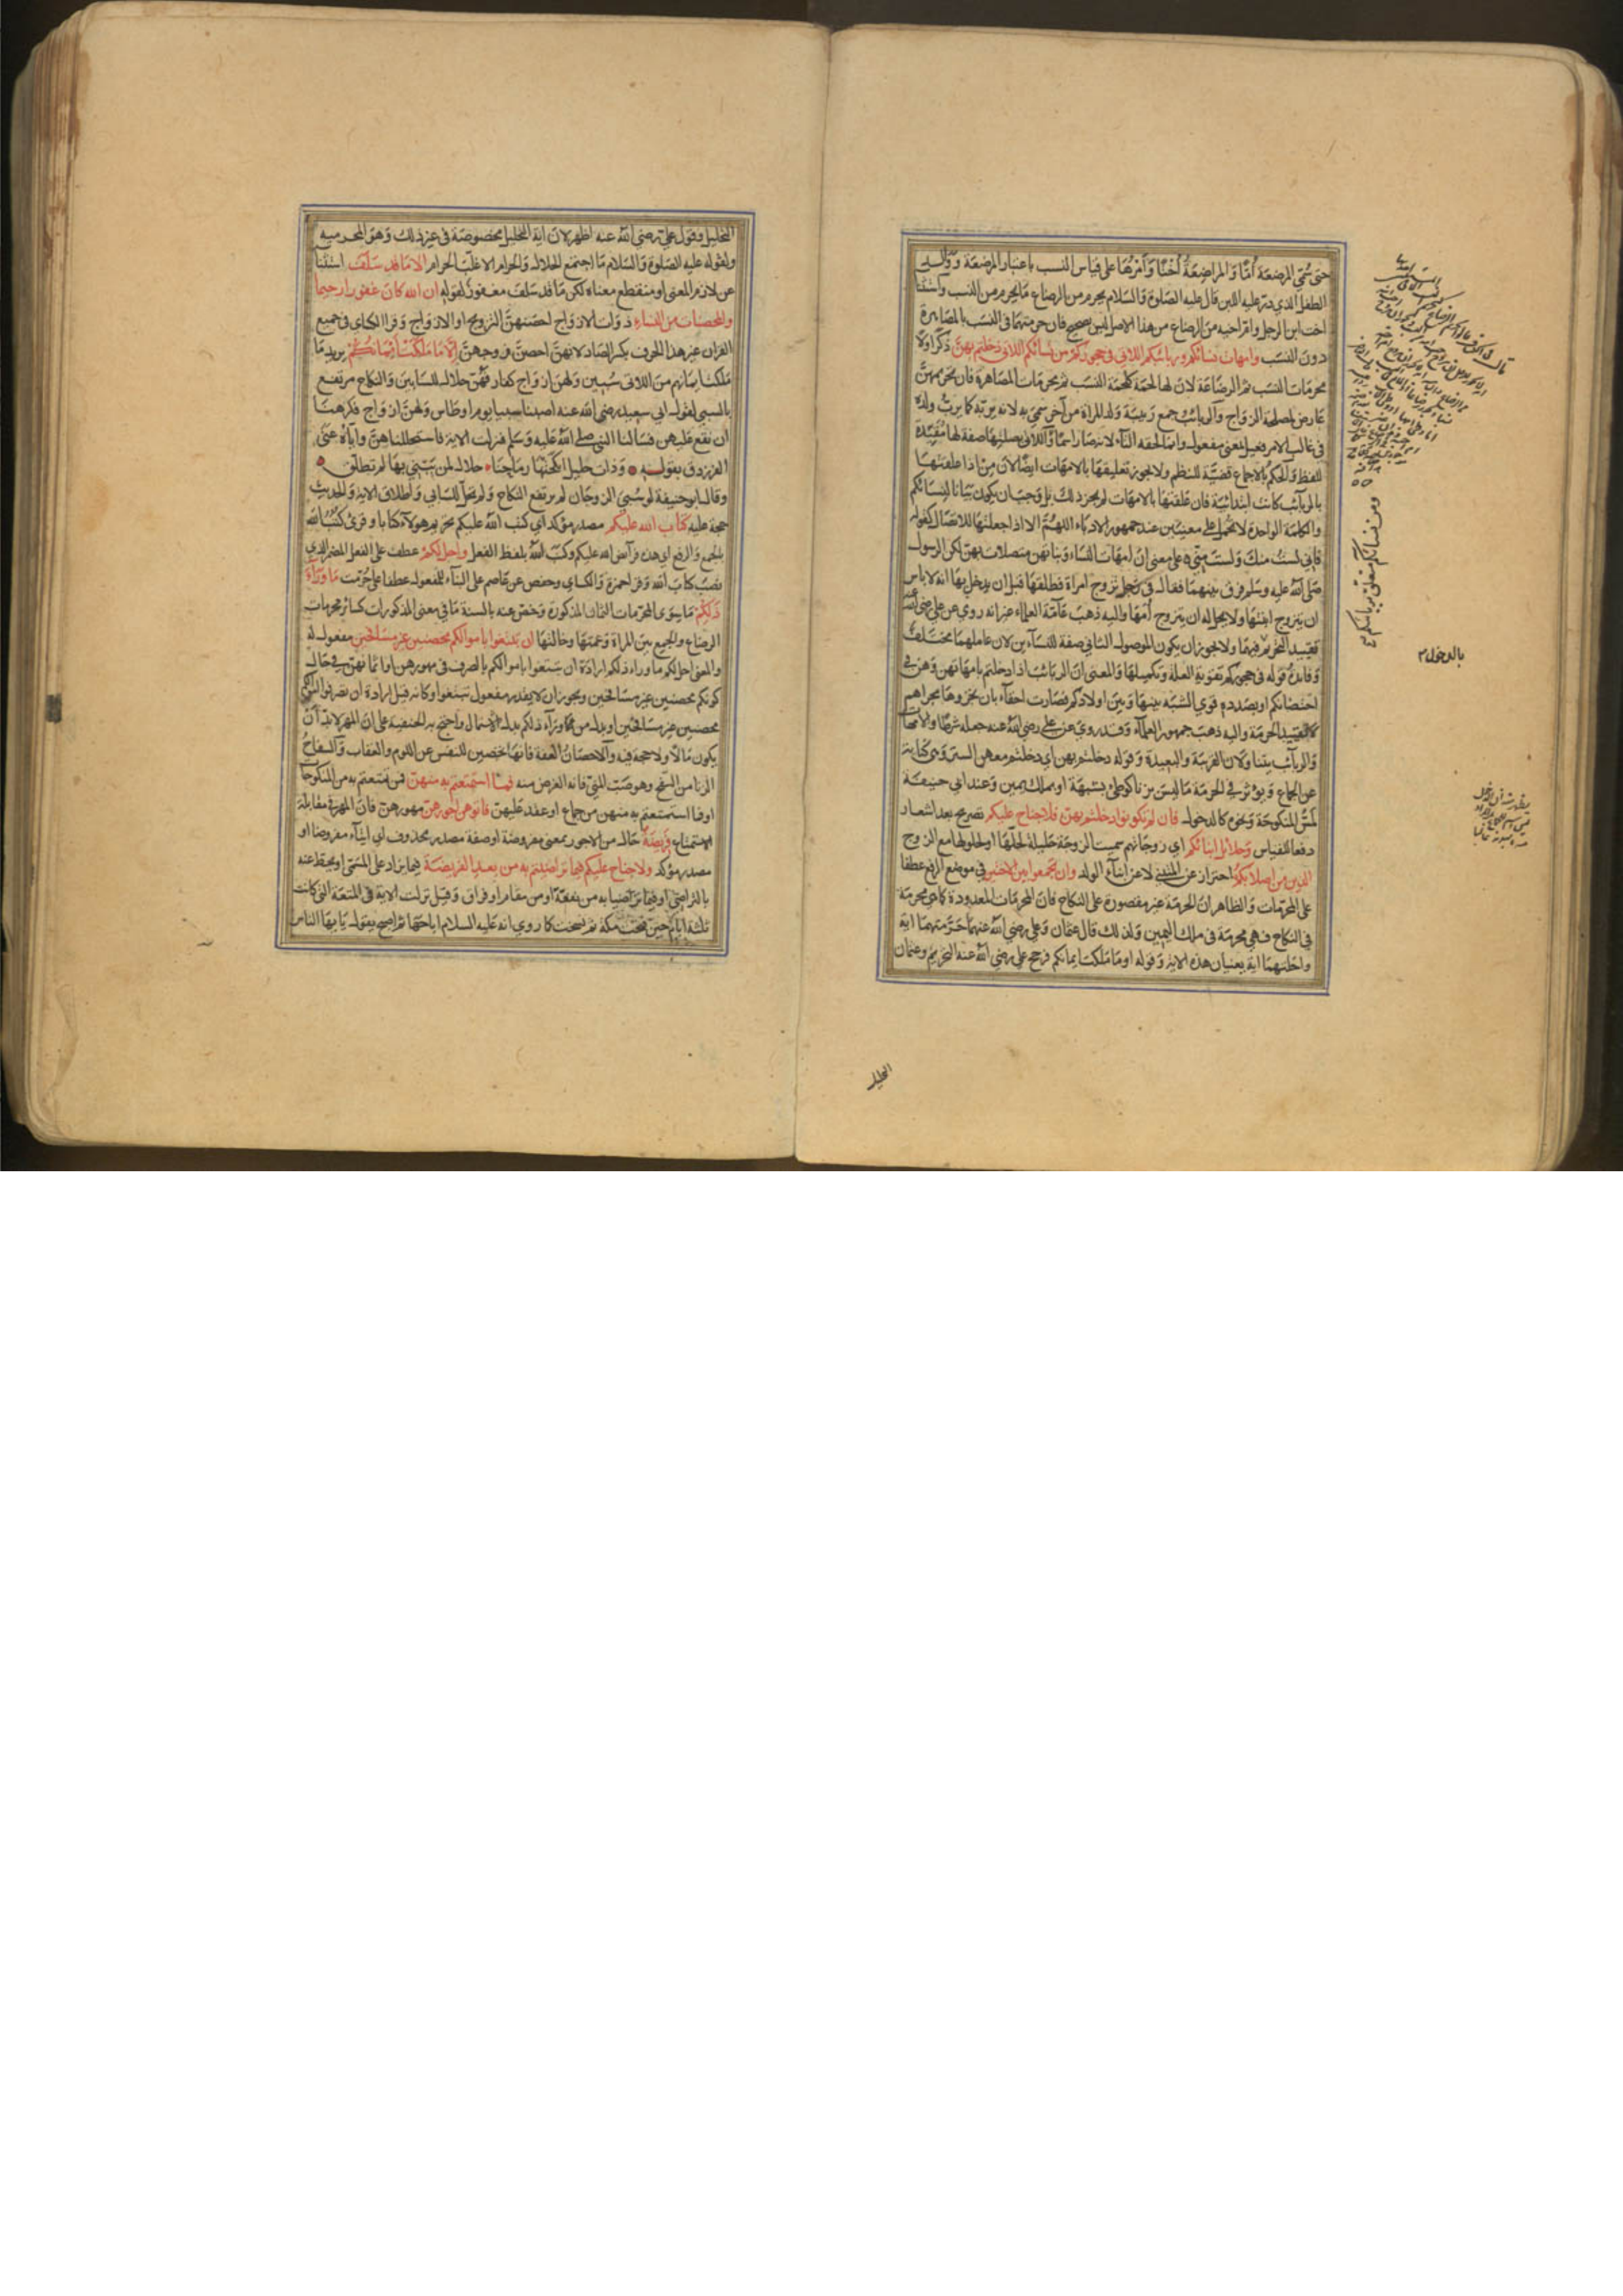 حتى سُمّي المرضعة أُمًّا وَالمراضِعَةُ أُخْتًا وَأمْرُهَا على قياس النسب باعتبار المرضعة وَوَالد
الطفل الذي درّ عليه اللبن قال عليه الصّلوة وَالسّلام يحرم من الرضاع مَا يحرم من النسب وَاستثنا
اخت ابن الرجل وام اخيه من الرضاع من هذا الاصل ليس بصحيح فان حرمتهما في النسَب بالمصَاهرة
دون النسَب وامهات نسَائكم وربائبكم اللاتي في حجوركم من نسائكم اللاتي دخلتم بهنّ ذكر اولًا
محرمات النسَب ثم الرضاعة لان لها لحمَة كلحمَة النسَب ثم محرمات المصَاهرة فان تحريمهنّ
عَارض لمصلحة الزواج وَالربائبُ جمع ربيبَة وَلد المراة من آخر سمّي به لانه يربّه كما يربّ ولده
في غالب الامر فعيل بمعنى مفعول وانما لحقه التآء لانه صَار اسمًا وَاللاتي بصلتها صفة لها مُقَيِّدة
للفظ وَالحكمُ بالاجماع قضيَّة للنظم ولا يجوز تعليقهَا بالامهات ايضًا لان مِنْ اذا علقتهَا
بالربآئب كانت ابتدائيّة فان علقتهَا بالامهات لم يجز ذلك بل وجبَ ان يكون بيَانا لنِسَائكم
والكلمَة الواحِدة لا تحمل على معنيَين عند جمهور الادبَاء اللهمَّ الا اذا جعلتهَا للاتصَال كقوله
فاني لستُ منك وَلستَ مِنّي على معنى انّ امهَات النسَاء وَبناتهن متصلات بهن لكن الرسول
صَلى الله عليه وسَلم فرق بينهمَا فقال في رَجل تزوج امراة فطلقهَا قبل ان يدخل بهَا انه لا باس
ان يتزوج ابنتهَا ولا يحل له ان يتزوج أمّهَا واليه ذهبَ عَامّة العلماء غير انه روي عن علي رضي الله عنه
تقييد التحريم فيهمَا ولا يجوز ان يكون الموصول الثاني صفة للنسَآءين لان عاملهمَا مختلف
وَفائدةُ قوله في حجوركم تقوية العلة وتكميلهَا وَالمعنى ان الربَائبَ اذا دخلتم بامهَاتهن وَهن في
احتضانكم او بصَدده قوي الشبَه بينهَا وَبين اولادكم فصَارت احقآء بان تجروهَا مجراهم
لا تقييد الحرمَة واليه ذهبَ جمهور العلمآء وَقد روي عن علي رضي الله عنه جعله شرطًا وَالامهَات
وَالربآئب يتناولان القريبَة وَالبعيدَة وَقوله دخلتم بهن اي دخلتم معهن الستر وَهي كنايَة
عن الجماع وَيؤثر في الحرمَة مَا ليسَ بزنا كوطئ بشبهة او بملك يمين وَعند ابي حنيفة
لمسُ المنكوحَة وَنحوه كالدخول فان لم تكونوا دخلتم بهنّ فلا جناح عليكم تصريح بعد اشعار
دفعا للقياس وَحلائل ابنائكم اي زوجاتهم سميت الزوجة حَليلة لحلّهَا او لحلولهَا مع الزوج
الذين من اصلابكم احتراز عن المتبنّى لا عن ابنآء الولد وان تجمعوا بين الاختين في موضع الرفع عطفا
على المحرمات وَالظاهر ان الحرمَة غير مقصورة على النكاح فان المحرمَات المعدودة كما هي محرمَة
في النكاح فهي محرمَة في ملك اليمين وَلذلك قال عثمان وَعلي رضي الله عنهمَا حَرّمَتهمَا اية
واحلتهمَا اية يعنيان هذه الاية وَقوله او مَا ملكت ايمانكم فرجح علي رضي الله عنه التحريم وعثمان
ومن نسائكم متعلق بربائبكم
بالدخول
التحليل
التحليل وقول علي رضي الله عنه اظهر لان اية التحليل مخصوصَة في غير ذلك وَهو المحرميه
ولقوله عليه الصّلوة وَالسّلام مَا اجتمع الحلال وَالحرام الا غلبَ الحرام الا مَا قد سَلف استثنا
عن لازم المعنى او منقطع معناه لكن مَا قد سَلف مغفور لقوله ان الله كان غفورا رحيما
وَالمحصنات من النسَاء ذوَات الازوَاج احصنهنّ التزويج او الازوَاج وَقرا الكسائي في جميع
القران غير هذا الحرف بكسر الصّاد لانهنّ احصنّ فروجهنّ اِلَّا مَا مَلَكَتْ أَيْمَانُكُمْ يريد مَا
مَلكت ايمَانهم من اللاتي سُبين وَلهن ازوَاج كفار فهُنّ حلال للسَابين وَالنكاح مرتفع
بالسبي لقول ابي سعيد رضي الله عنه اصبنا سبيا يوم اوطَاس وَلهنّ ازوَاج فكرهنا
ان نقع عليهن فسَالنا النبي صلى الله عَليه وَسَلم فنزلت الاية فاستحللناهنّ واياه عنى
الفرزدق بقوله وَذات حليل انكحَتْهَا رمَاحنَا حلال لمن يَبْني بهَا لم تطلّق
وقال ابو حنيفة لو سُبيَ الزوجَان لم يرتفع النكاح وَلم تحل للسَابي وَاطلاق الاية وَالحديث
حجة عليه كتابَ الله عليكم مصدر مؤكد اي كتب الله عليكم تحريم هؤلاء كتابا وقرئ كُتُبُ الله
بالجمع وَالرفع اي هذه فرآئض الله عليكم وكتبَ الله بلفظ الفعل واحل لكم عطف على الفعل المضمر الذي
نصَبَ كتابَ الله وَقرا حمزة وَالكسائي وحفص عن عَاصم على البنآء للمفعول عطفا على حُرّمت مَا وَرَآءَ
ذَلِكُمْ مَا سِوَى المحرّمات الثمان المذكورة وَخصّ عنه بالسنة مَا في معنى المذكورات كسائر محرمات
الرضاع والجمع بين المراة وَعمتهَا وخالتهَا ان تبتغوا باموالكم محصنين غير مسَافحين مفعول له
والمعنى احل لكم ما وراء ذلكم ارادة ان تبتغوا باموالكم بالصرف في مهورهن او اثمانهنّ في حَال
كونكم محصنين غير مسَافحين ويجوز ان لا يقدر مفعول تبتغوا وكانه قيل ارادة ان تصرفوا اموالكم
محصنين غير مسَافحين او بدل من مَا وَرَآء ذلكم بدل الاشتمال واحتج به الحنفية على ان المهر لا بد ان
يكون مَالا ولا حجة فيه وَالاحصَانُ العفة فانهَا تحصين للنفس عن اللوم والعقاب وَالسفاحُ
الزنا من السفح وهو صَبّ المنيّ فانه الغرض منه فمَا استمتعتم به منهنّ فمن تمتعتم به من المنكوحات
او فما استمتعتم به منهن من جماع او عقد عَليهنّ فآتوهن اجورهنّ مهورهنّ فان المهر في مقابلة
الاستمتاع فَرِيضَةً حَال من الاجور بمعنى مفروضة او صفة مصدر محذوف اي ايتآء مفروضا او
مصدر مؤكد ولا جناح عليكم فيمَا ترَاضيتم به من بعد الفريضَة فيما يزاد على المسَمّى او يحط عنه
بالتراضي او فيمَا تراضيا به من نفقة او من مقام او فراق وَقيل نزلت الاية في المتعة التي كانت
ثلثة ايام حين فتحت مكة ثم نسخت كما روي انه عليه السلام اباحَهَا ثم اصبح يقول يا ايهَا الناس